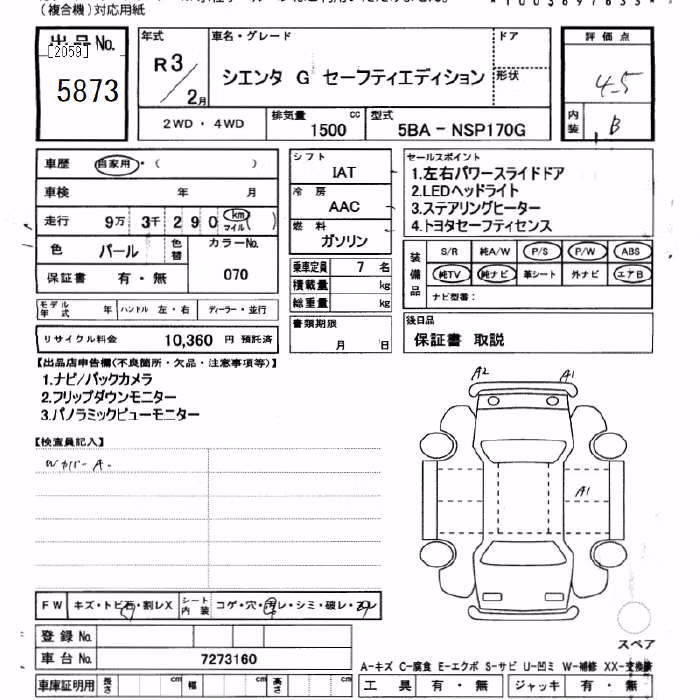 (複合機)対応用紙
出品No.
[2059]
5873
年式
R3/2月
車名・グレード
シエンタ G セーフティエディション
ドア
形状
2WD・4WD
排気量
1500 cc
型式
5BA - NSP170G
評価点
4.5
内装
B
車歴 自家用・( )
車検 年 月
走行 9万 3千 2 9 0 km マイル
色 パール 色替
カラーNo.
070
保証書 有・無
モデル年式 年 ハンドル 左・右 ディーラー・並行
リサイクル料金 10,360 円 預託済
シフト
IAT
冷房
AAC
燃料
ガソリン
乗車定員 7 名
積載量 kg
総重量 kg
書類期限
月 日
セールスポイント
1.左右パワースライドドア
2.LEDヘッドライト
3.ステアリングヒーター
4.トヨタセーフティセンス
装備品
S/R 純A/W P/S P/W ABS
純TV 純ナビ 革シート 外ナビ エアB
ナビ型番:
後日品
保証書 取説
【出品店申告欄(不良箇所・欠品・注意事項等)】
1.ナビ/バックカメラ
2.フリップダウンモニター
3.パノラミックビューモニター
【検査員記入】
Wカバー A-
A2
A1
A1
FW キズ・トビ石・割レX シート内装 コゲ・穴・汚レ・シミ・破レ・スレ
登録No.
車台No. 7273160
車庫証明用 長さ cm 幅 cm 高さ cm
スペア
A-キズ C-腐食 E-エクボ S-サビ U-凹ミ W-補修 XX-交換済
工具 有・無 ジャッキ 有・無